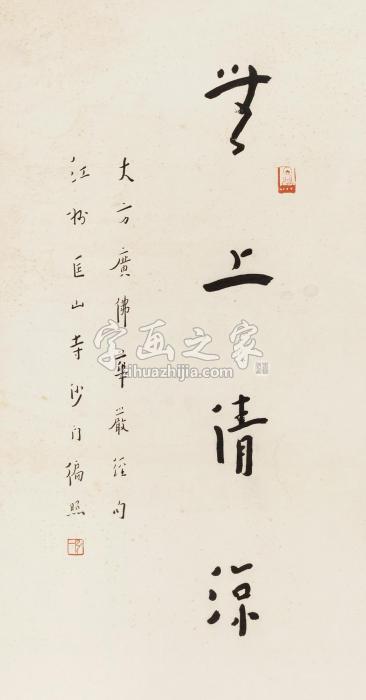 無上清涼
大方廣佛華嚴經句
江州匡山寺沙門徧照
字画之家
zihuazhijia.com